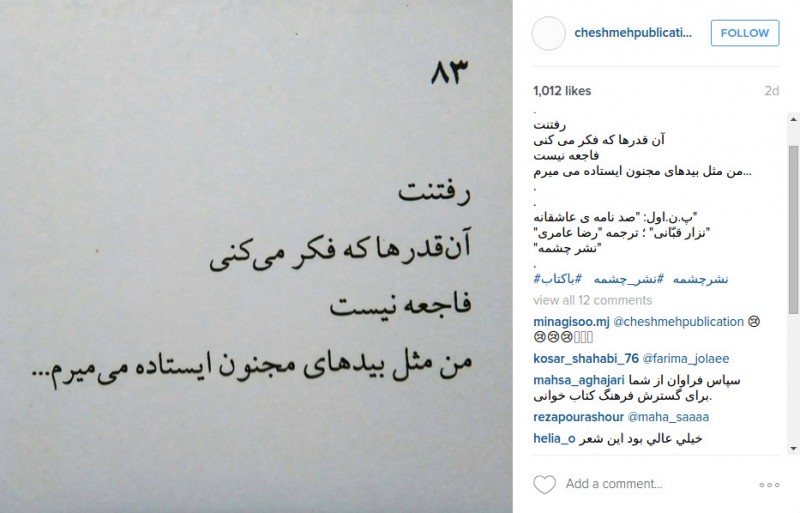 ۸۳
رفتنت
آن‌قدرها که فکر می‌کنی
فاجعه نیست
من مثل بیدهای مجنون ایستاده می‌میرم...
cheshmehpublicati...
FOLLOW
1,012 likes
2d
.
رفتنت
آن قدرها که فکر می کنی
فاجعه نیست
من مثل بیدهای مجنون ایستاده می میرم...
.
.
پ.ن.اول: "صد نامه ی عاشقانه"
"نزار قبّانی" ؛ ترجمه "رضا عامری"
"نشر چشمه"
.
#نشرچشمه #نشر_چشمه #باکتاب
view all 12 comments
minagisoo.mj @cheshmehpublication 😢
😢😢😢
kosar_shahabi_76 @farima_jolaee
mahsa_aghajari سپاس فراوان از شما
برای گسترش فرهنگ کتاب خوانی.
rezapourashour @maha_saaaa
helia_o خيلي عالي بود اين شعر
Add a comment...